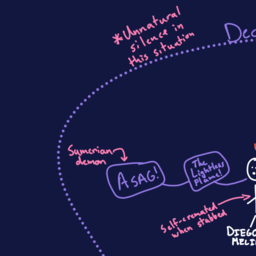 *Unnatural
silence in
this situation
Dec
Sumerian
demon
ASAG!
The
Lightless
Flame!
Self-cremated
when stabbed
DIEGO
MELI